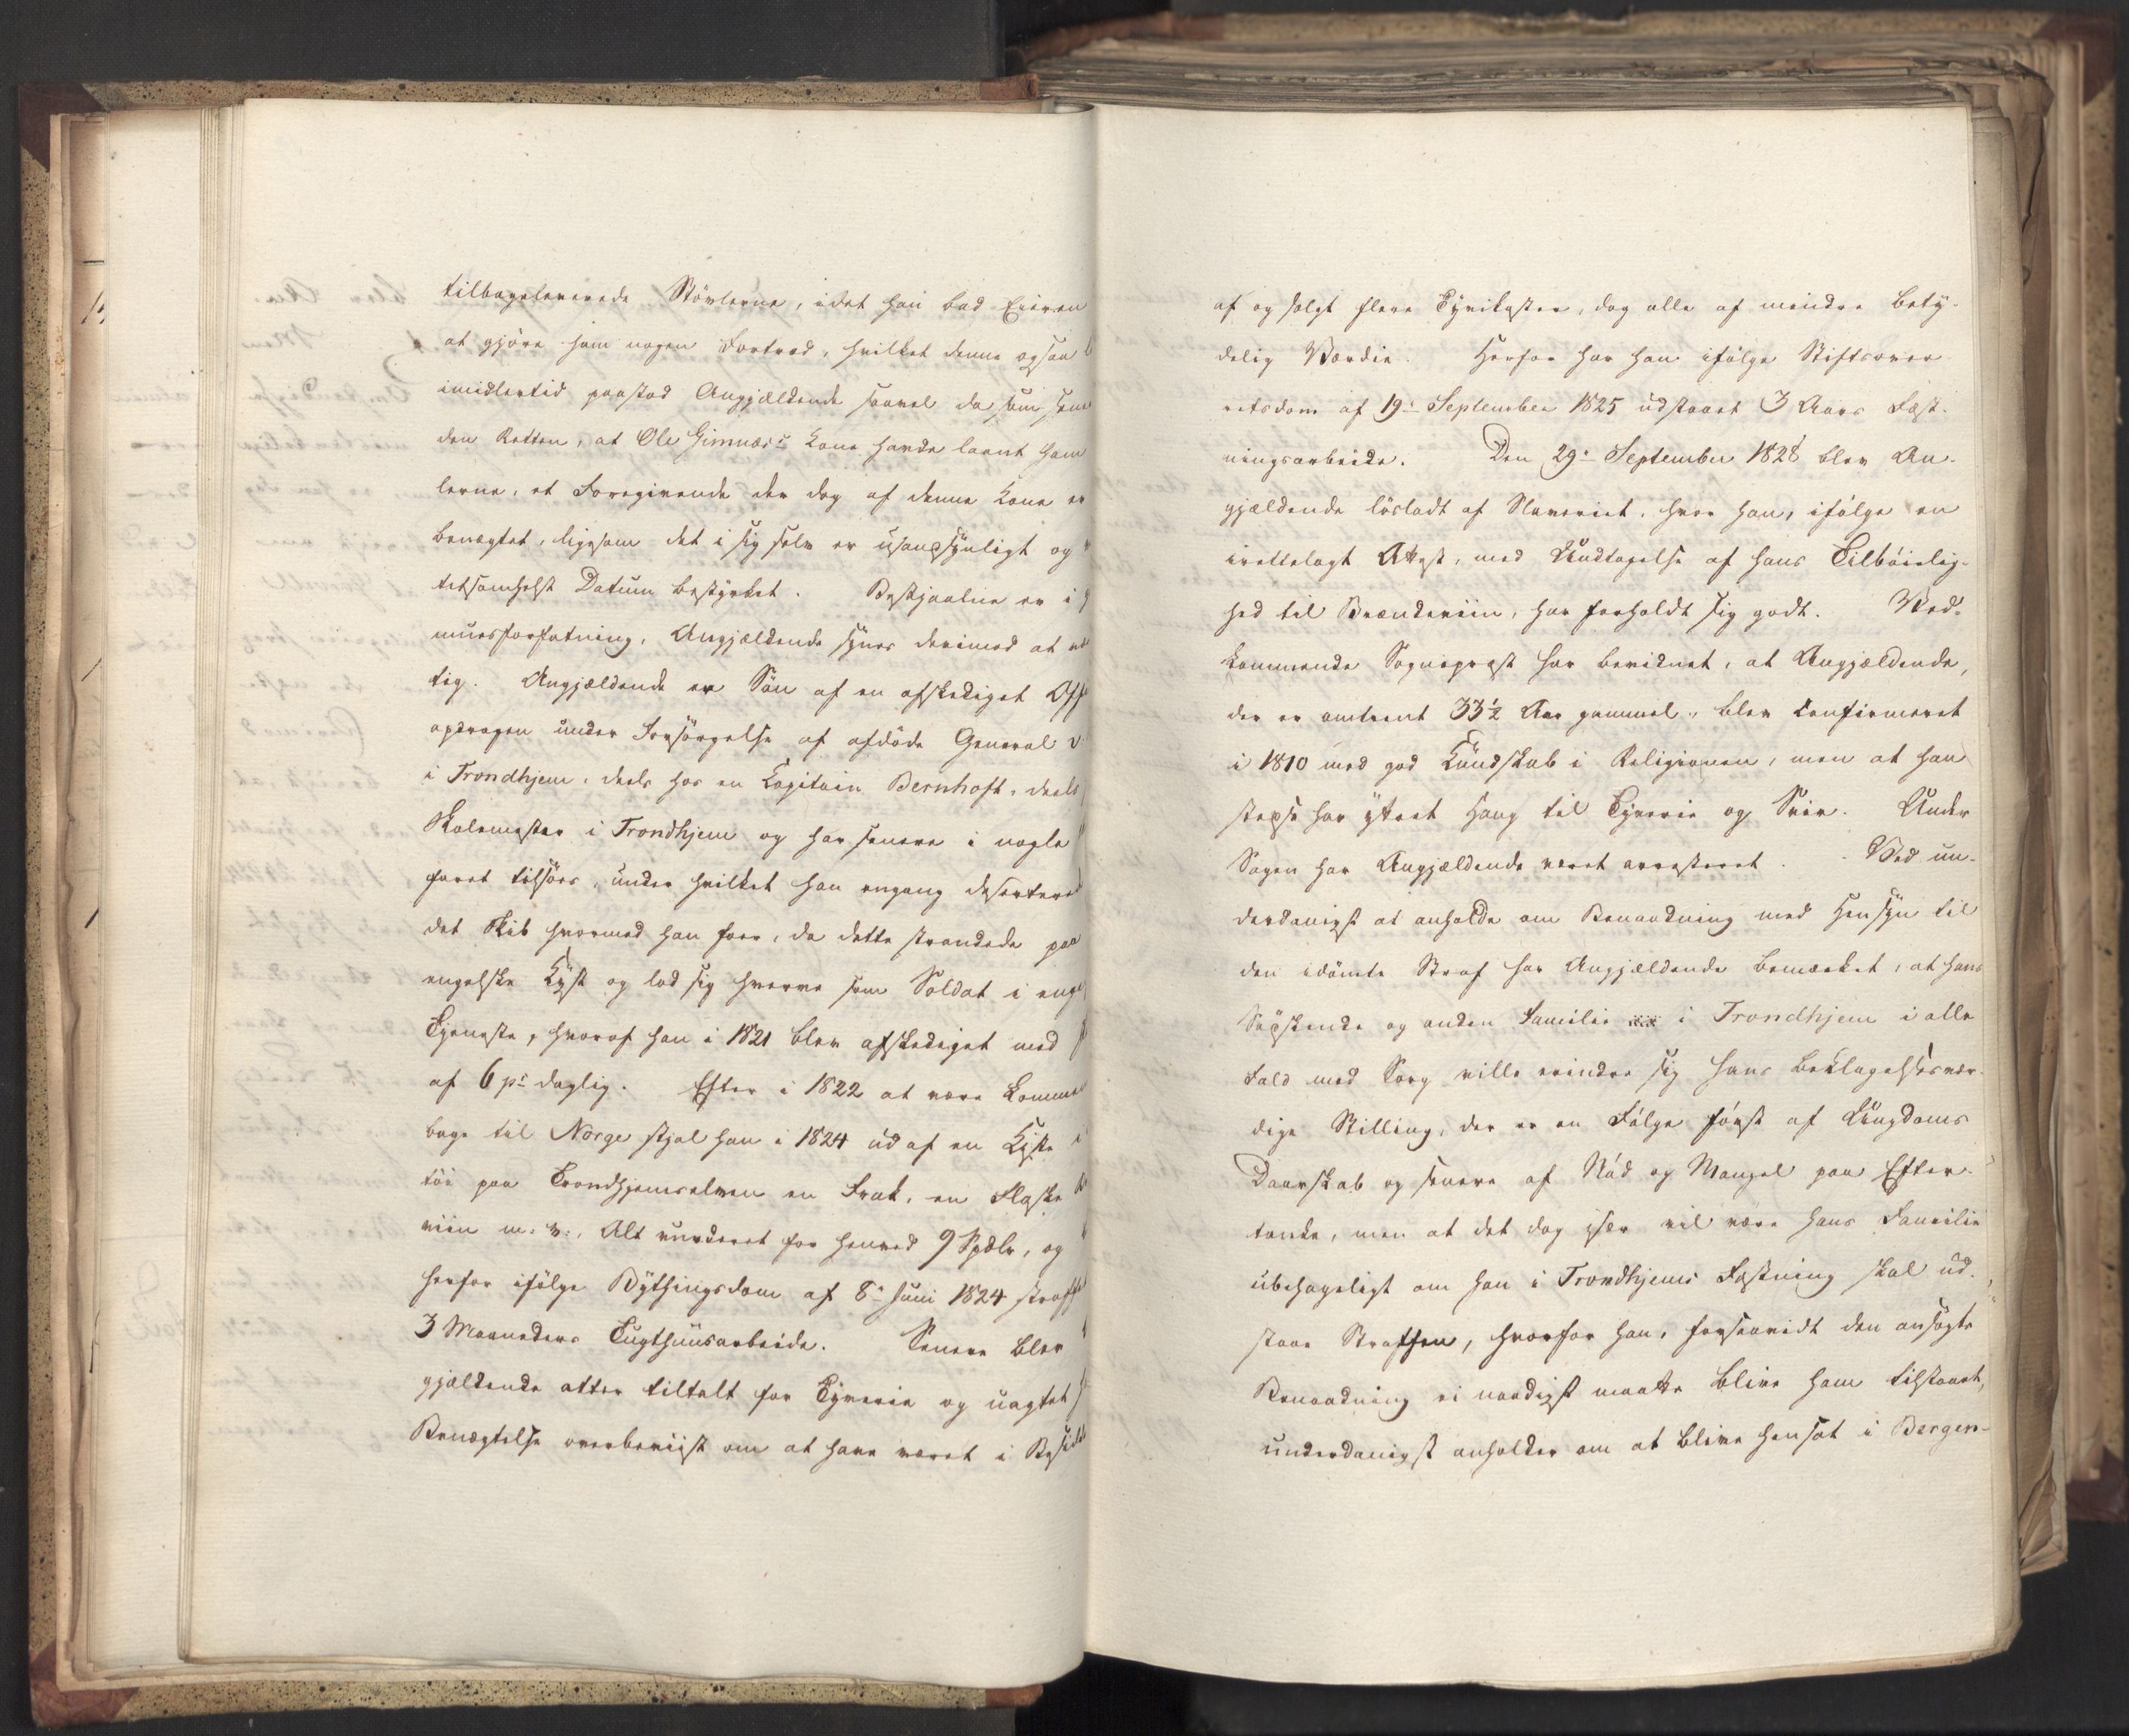 tilbageleverede Stövlerne, idet han bad Eieren
at gjöre ham nogen Fortræd, hvilket denne ogsaa
imidlertid paastod Angjældende saavel da som
den Retten, at Ole Gimnæs's Kone havde laant ham
lerne, et Foregivende der dog af denne Kone er
benægtet, ligesom det i sig selv er usandsynligt og
tetsomhelst Datum bestyrket. Bestjaalne er i
muesforfatning, Angjældende synes derimod at
tig. Angjældende er Sön af en afskediget
opdragen under Forsörgelse af afdöde General
i Trondhjem, deels hos en Capitain Bernhoft, deels
Skolemester i Trondhjem og har senere i nogle
faret tilsöes, under hvilket han engang deserterede
det Skib hvormed han foer, da dette strandede paa
engelske Kyst og lod sig hverve som Soldat i
Tjeneste, hvoraf han i 1821 blev afskediget med
af 6 p: daglig. Efter i 1822 at være kommen
bage til Norge stjal han i 1824 ud af en Kiste
töi paa Trondhjemselven en Frak, en Flaske
viin m: v:, Alt vurderet for henved 9 Spdlr, og
herfor ifölge Bythingsdom af 8de Juni 1824
3 Maaneders Tugthuusarbeide. Senere blev
gjældende atter tiltalt for Tyverie og uagtet
Benægtelse overbeviist om at have været i
af og solgt flere Tyvekoster, dog alle af mindre bety-
delig Værdie. Herfor har han ifölge Stiftsover
retsdom af 19de September 1825 udstaaet 3 Aars Fæst-
ningsarbeide. Den 29de September 1828 blev An-
gjældende lösladt af Slaveriet, hvor han, ifölge en
irettelagt Attest, med Undtagelse af hans Tilböielig-
hed til Brændeviin, har forholdt sig godt. Ved-
kommende Sognepræst har bevidnet, at Angjældende,
der er omtrent 33½ Aar gammel, blev confirmeret
i 1810 med god Kundskab i Religionen, men at han
stedse har yttret Hang til Tyverie og Sviir. Under
Sagen har Angjældende været arresteret. Ved un-
derdanigst at anholde om Benaadning med Hensyn til
den idömte Straf har Angjældende bemærket, at hans
Södskende og anden Familie i Trondhjem i alle
Fald med Sorg ville erindre sig hans beklagelsesvær-
dige Stilling, der er en Fölge först af Ungdoms
Daarskab og senere af Nöd og Mangel paa Efter-
tanke, men at det dog især vil være hans Familie
ubehageligt om han i Trondhjems Fæstning skal ud-
staae Straffen, hvorfor han, forsaavidt den ansögte
Benaadning ei naadigst maatte blive ham tilstaaet,
underdanigst anholder om at blive hensat i Bergen-